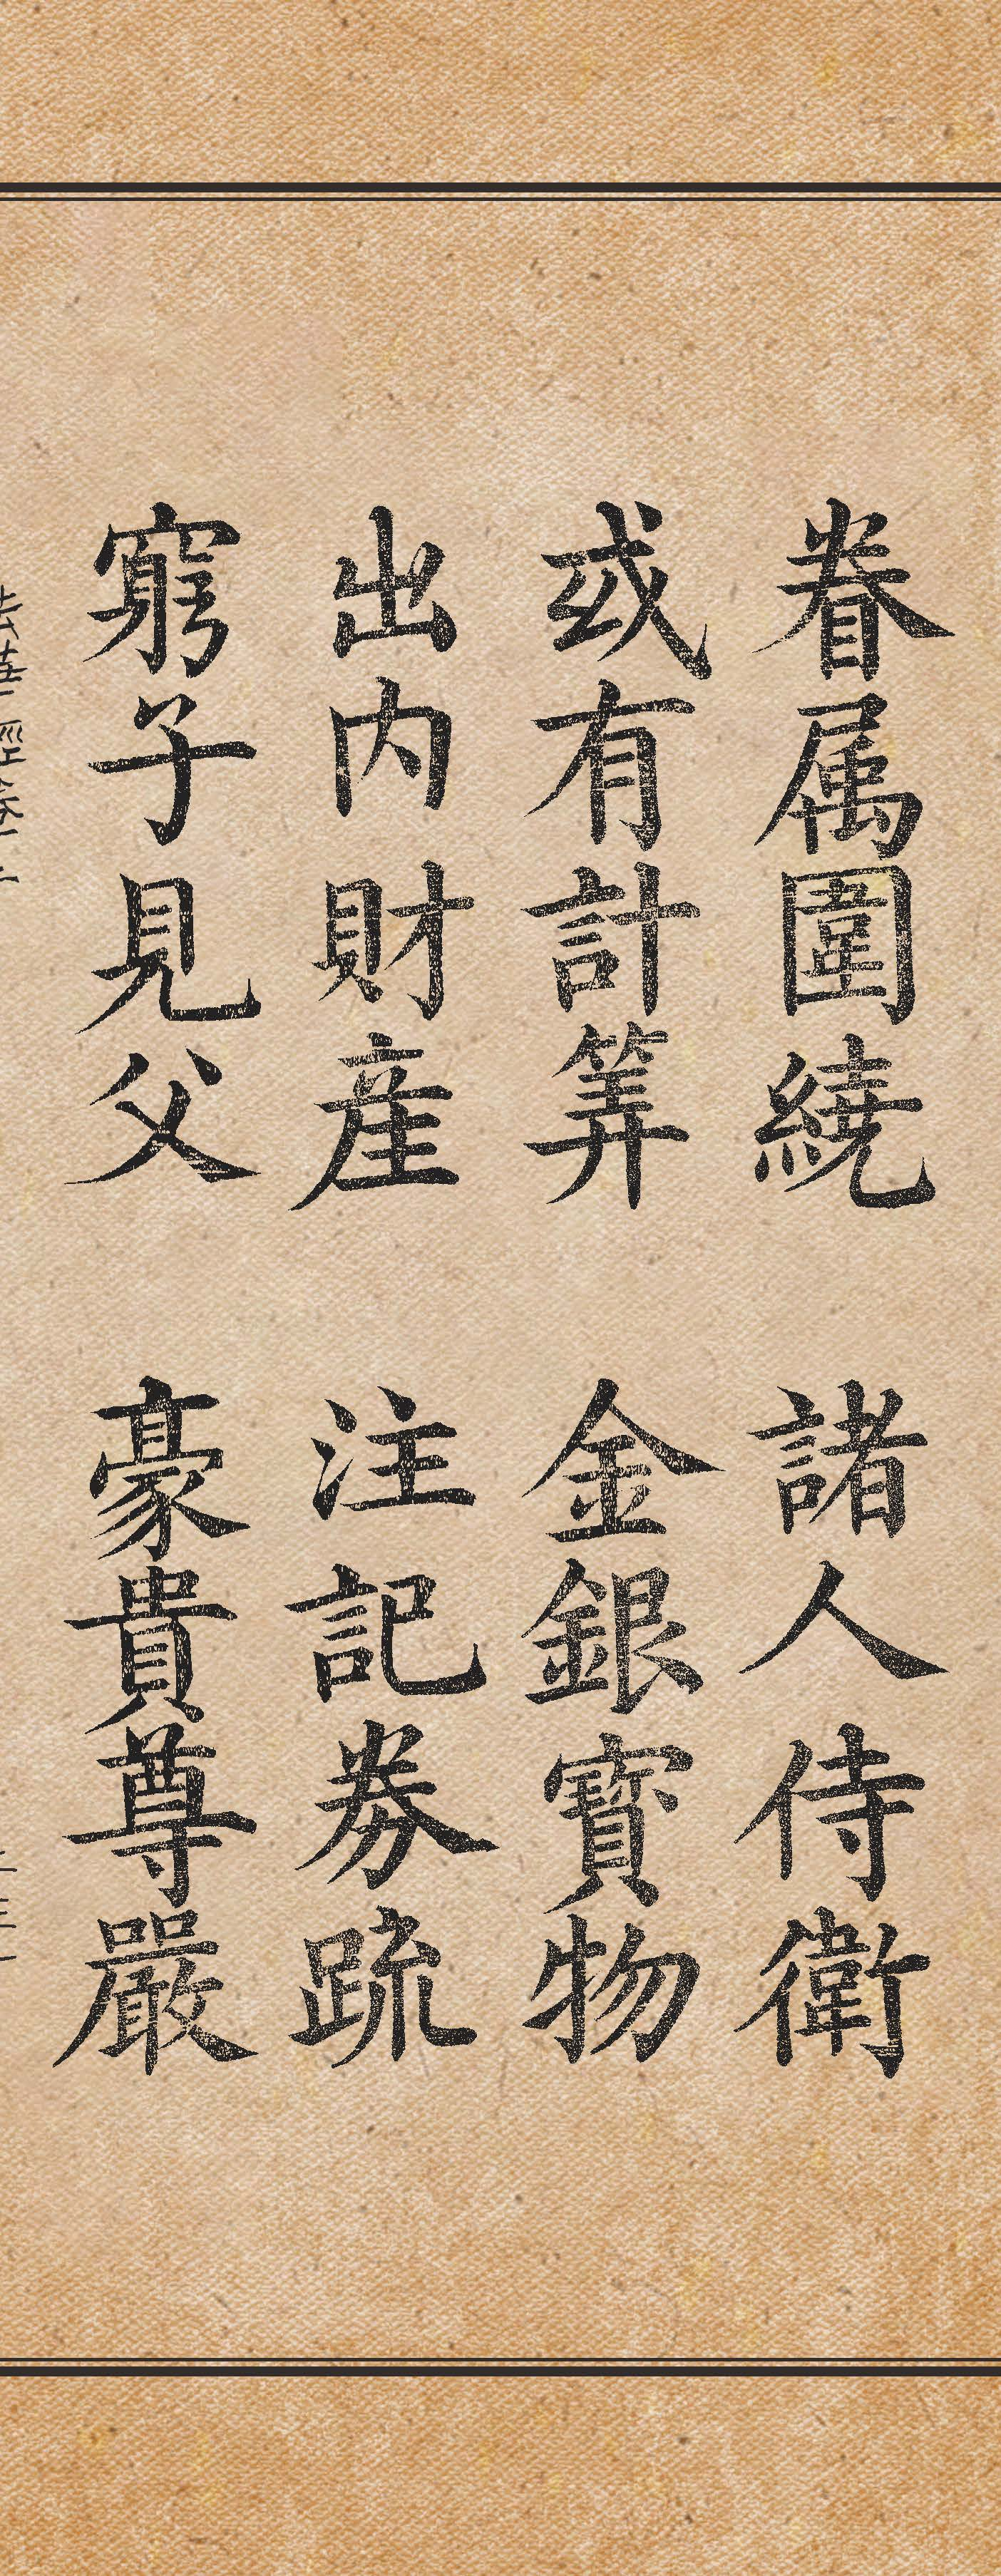 眷属圍繞 諸人侍衛
或有計筭 金銀寳物
出内財産 注記券疏
窮子見父 豪貴尊嚴